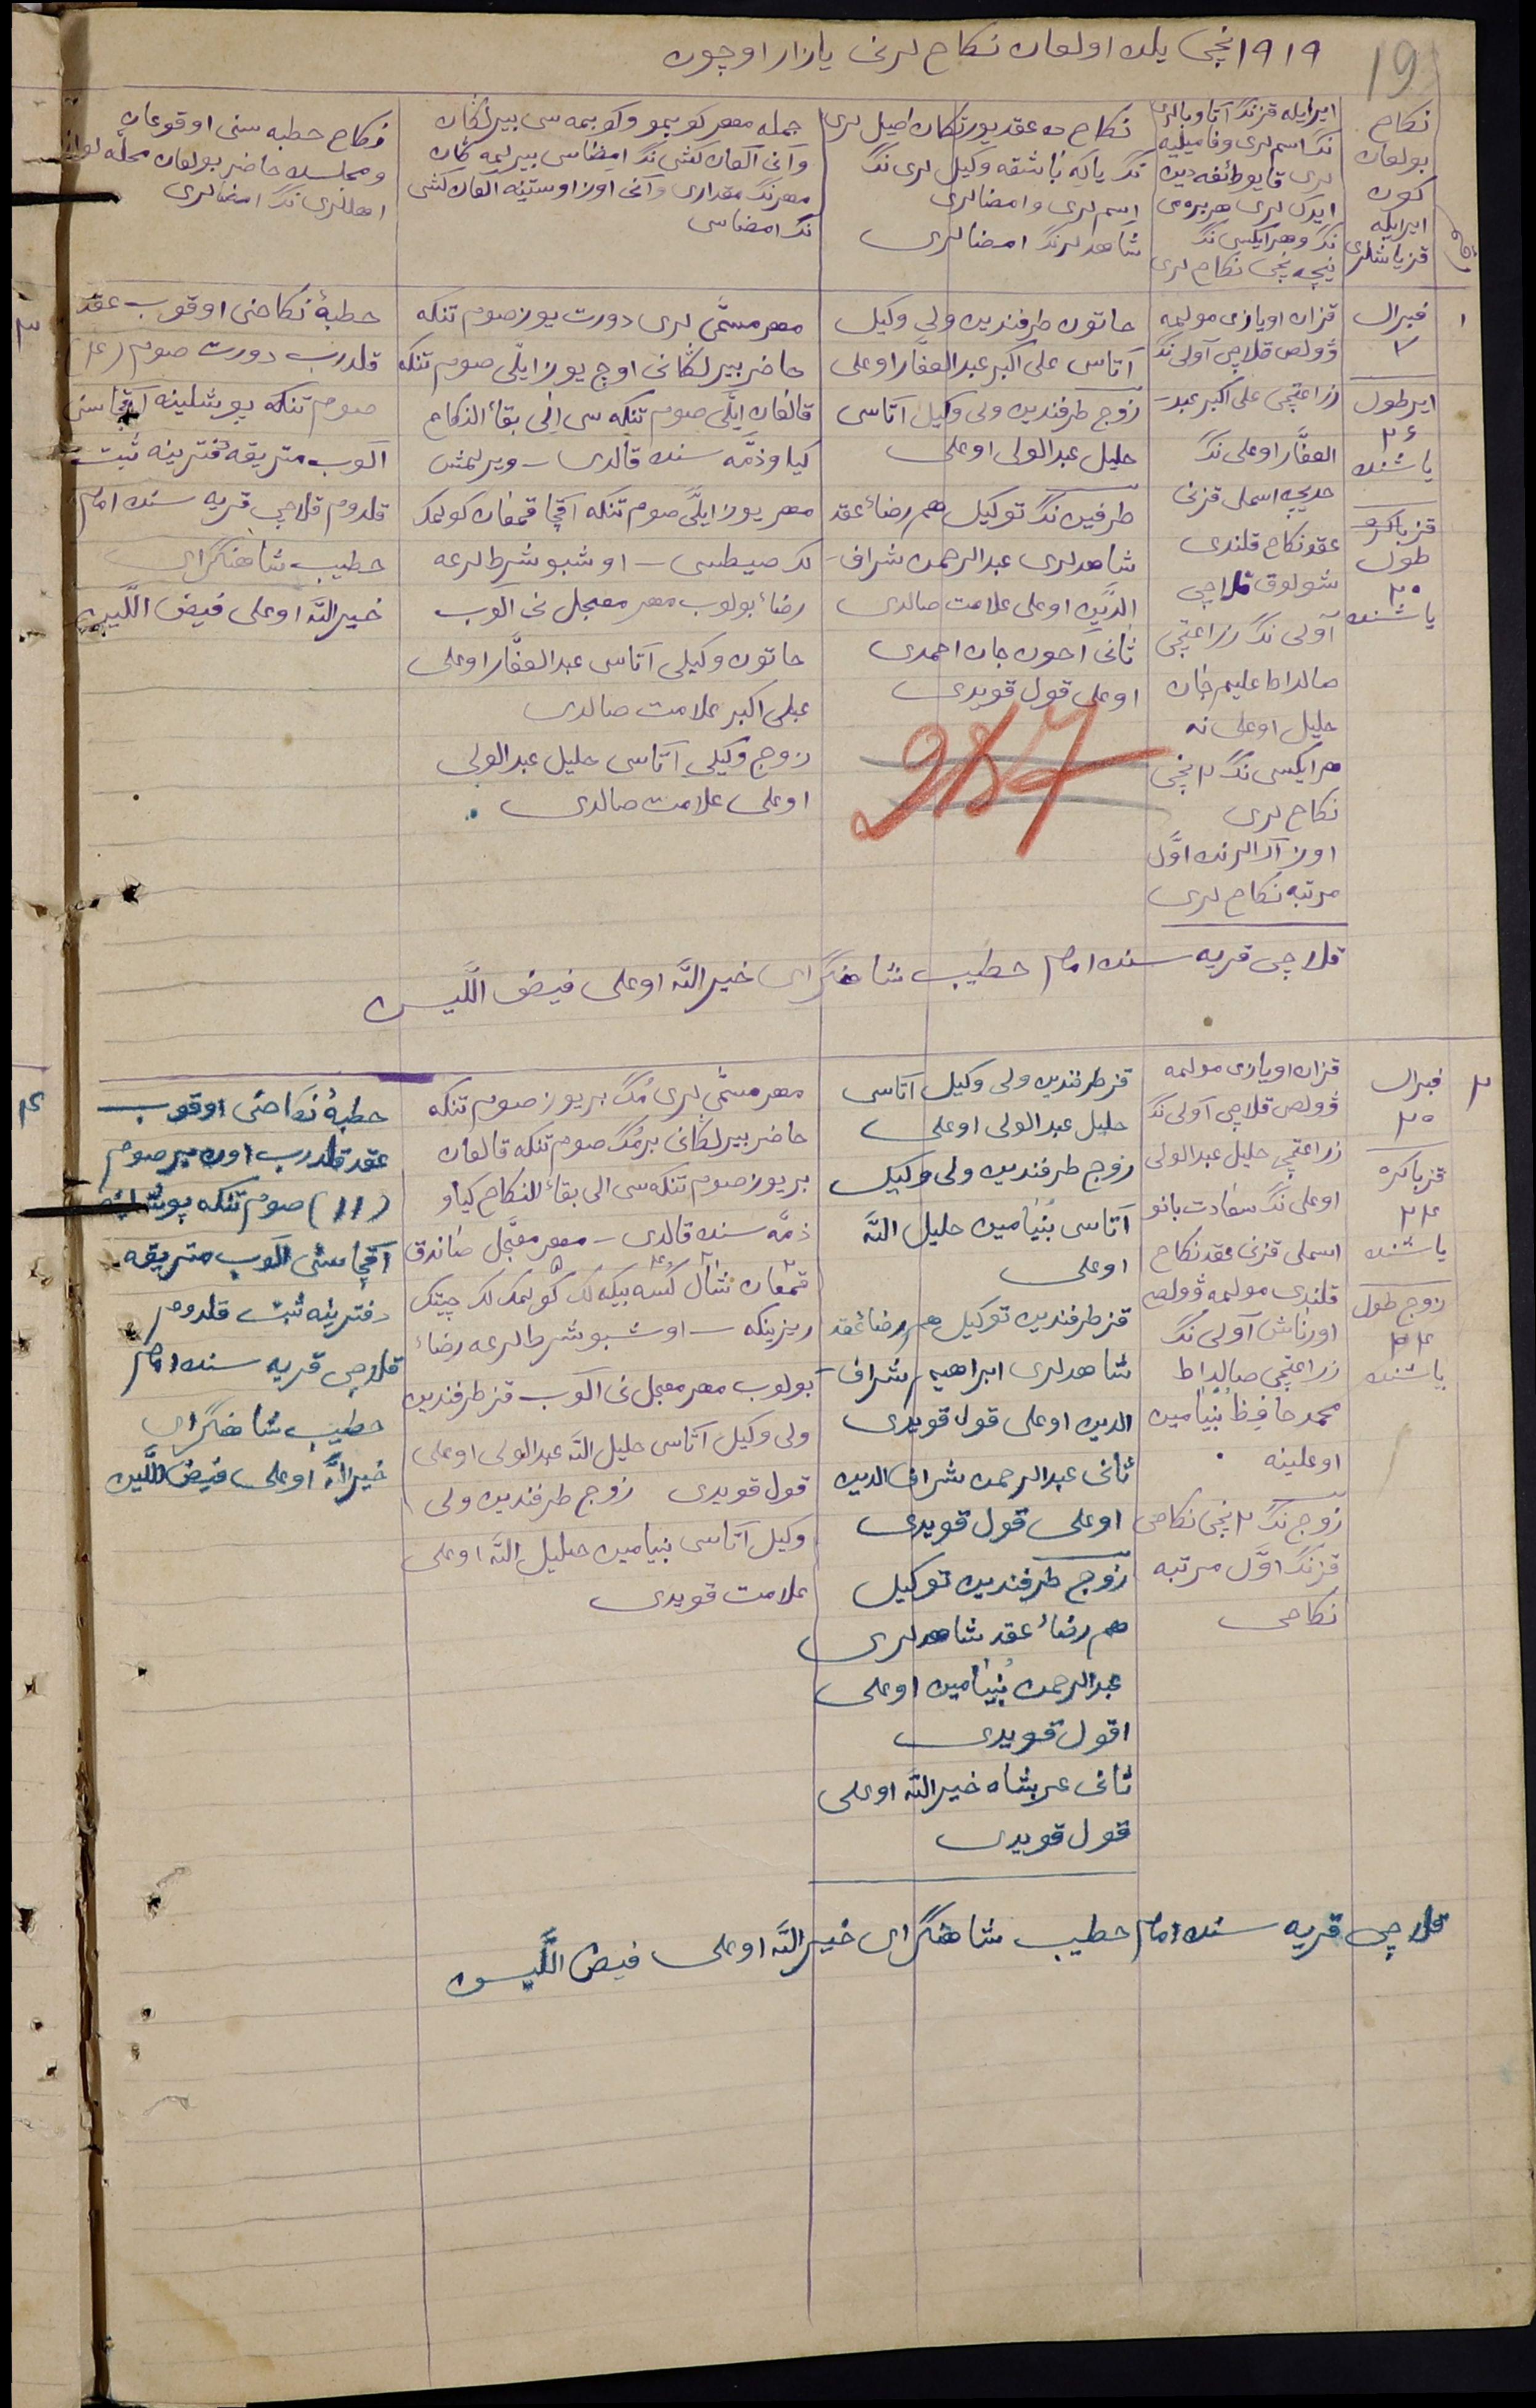 ۱۹۱۹ نچی یلده اولغان نكاح لرنی یازار اوچون
19
نكاح
بولغان
كون
ایرایله
قزیاشلری
ایرایله قزنڭ آتا و بابالری
نڭ اسم لری و فامیلیه
لری قایو طائفه دین
ایدك لری هر بره سی
نڭ و هر ایكسی نڭ
نیچه نچی نكاح لری
نكاح ده عقد یورتكان اصیل لری
نڭ یاكه باشقه وكیل لری نڭ
اسم لری و امضالری
شاهد لرنڭ امضالری
جمله مهر كوبمو وكوبمه سی بیرلگان
و آنی آلغان كشی نڭ امضاسی بیرلمه گان
مهرنڭ مقداری و آنی اوز اوستینه آلغان كشی
نڭ امضاسی
نكاح خطبه سنی اوقوغان
و مجلسده حاضر بولغان محله
اهللری نڭ امضالری
۱
فبرال
۷
ایر طول
۲۶
یاشنده
قز باكره
طول
۲۰
یاشنده
قزان اویازی مولمه
ۋولص قلاچی آولی نڭ
زراعتچی علی اكبر عبد
الغفار اوغلی نڭ
خدیجه اسملی قزنی
عقد نكاح قلندی
شولوق قلاچی
آولی نڭ زراعتچی
صالداط علیم خان
خلیل اوغلی نه
هر ایكسی نڭ ۲ نچی
نكاح لری
اوز آرالرنده اوّل
مرتبه نكاح لری
خاتون طرفندین ولی وكیل
آتاسی علی اكبر عبد الغفّار اوغلی
زوج طرفندین ولی وكیل آتاسی
خلیل عبد الولی اوغلی
طرفین نڭ توكیل هم رضاء عقد
شاهدلری عبد الرحمن شراف
الدّین اوغلی علامت صالدی
ثانی آخون جان احمدی
اوغلی قول قویدی
287
مهر مسمّی لری دورت یوز صوم تنكه
حاضر بیرلگانی اوچ یوز ایلّی صوم تنكه
قالغان ایلّی صوم تنكه سی الی بقاء النكاح
كیاو ذمّه سنده قالدی – ویرلمش
مهر یوز ایلّی صوم تنكه آقچا قمغان كولمك
لك صیطسی – اوشبو شرطلرغه
رضاء بولوب مهر معجل نی آلوب
خاتون وكیلی آتاسی عبد الغفّار اوغلی
علی اكبر علامت صالدی
زوج وكیلی آتاسی خلیل عبد الولی
اوغلی علامت صالدی
خطبهٔ نكاحنی اوقوب عقد
قلدرب دورت صوم (۴)
صوم تنكه پوشلینه آقچاسنی
آلوب متریقه دفترینه ثبت
قلدوم قلاچی قریه سنده امام
خطیب شاهنگرای
خیر الله اوغلی فیض اللّین
۳
قلاچی قریه سنده امام خطیب شاهنگرای خیر الله اوغلی فیض اللّین
۲
فبرال
۲۰
قز باكره
۲۴
یاشنده
زوج طول
۳۴
یاشنده
قزان اویازی مولمه
ۋولص قلاچی آولی نڭ
زراعتچی خلیل عبد الولی
اوغلی نڭ سعادت بانو
اسملی قزنی عقد نكاح
قلندی مولمه ۋولص
اورناش آولی نڭ
زراعتچی صالداط
محمد حافظ بنیامین
اوغلینه
زوج نڭ ۲ نچی نكاحی
قزنڭ اوّل مرتبه
نكاحی
قز طرفندین ولی وكیل آتاسی
خلیل عبد الولی اوغلی
زوج طرفندین ولی وكیل
آتاسی بنیامین خلیل الله
اوغلی
قز طرفندین توكیل هم رضاء عقد
شاهدلری ابراهیم شراف
الدین اوغلی قول قویدی
ثانی عبد الرحمن شراف الدین
اوغلی قول قویدی
زوج طرفندین توكیل
هم رضاء عقد شاهدلری
عبد الرحمن بنیامین اوغلی
اقول قویدی
ثانی عربشاه خیر الله اوغلی
قول قویدی
مهر مسمّی لری مڭ بر یوز صوم تنكه
حاضر بیرلگانی بر مڭ صوم تنكه قالغان
بر یوز صوم تنكه سی الی بقاء النكاح كیاو
ذمّه سنده قالدی – مهر معجّل صاندق
قمغان شال كسه بیكه لك كولمك لك چیتك
ریزینكه – اوشبو شرطلرغه رضاء
بولوب مهر معجل نی آلوب قز طرفندین
ولی وكیل آتاسی خلیل الله عبد الولی اوغلی
قول قویدی زوج طرفندین ولی
وكیل آتاسی بنیامین خلیل الله اوغلی
علامت قویدی
خطبهٔ نكاحنی اوقوب
عقد قلدرب اون بر صوم
(۱۱) صوم تنكه پوشلینه
آقچاسنی آلوب متریقه
دفترینه ثبت قلدوم
قلاچی قریه سنده امام
خطیب شاهنگرای
خیر الله اوغلی فیض اللّین
۴
قلاچی قریه سنده امام خطیب شاهنگرای خیر الله اوغلی فیض اللّین